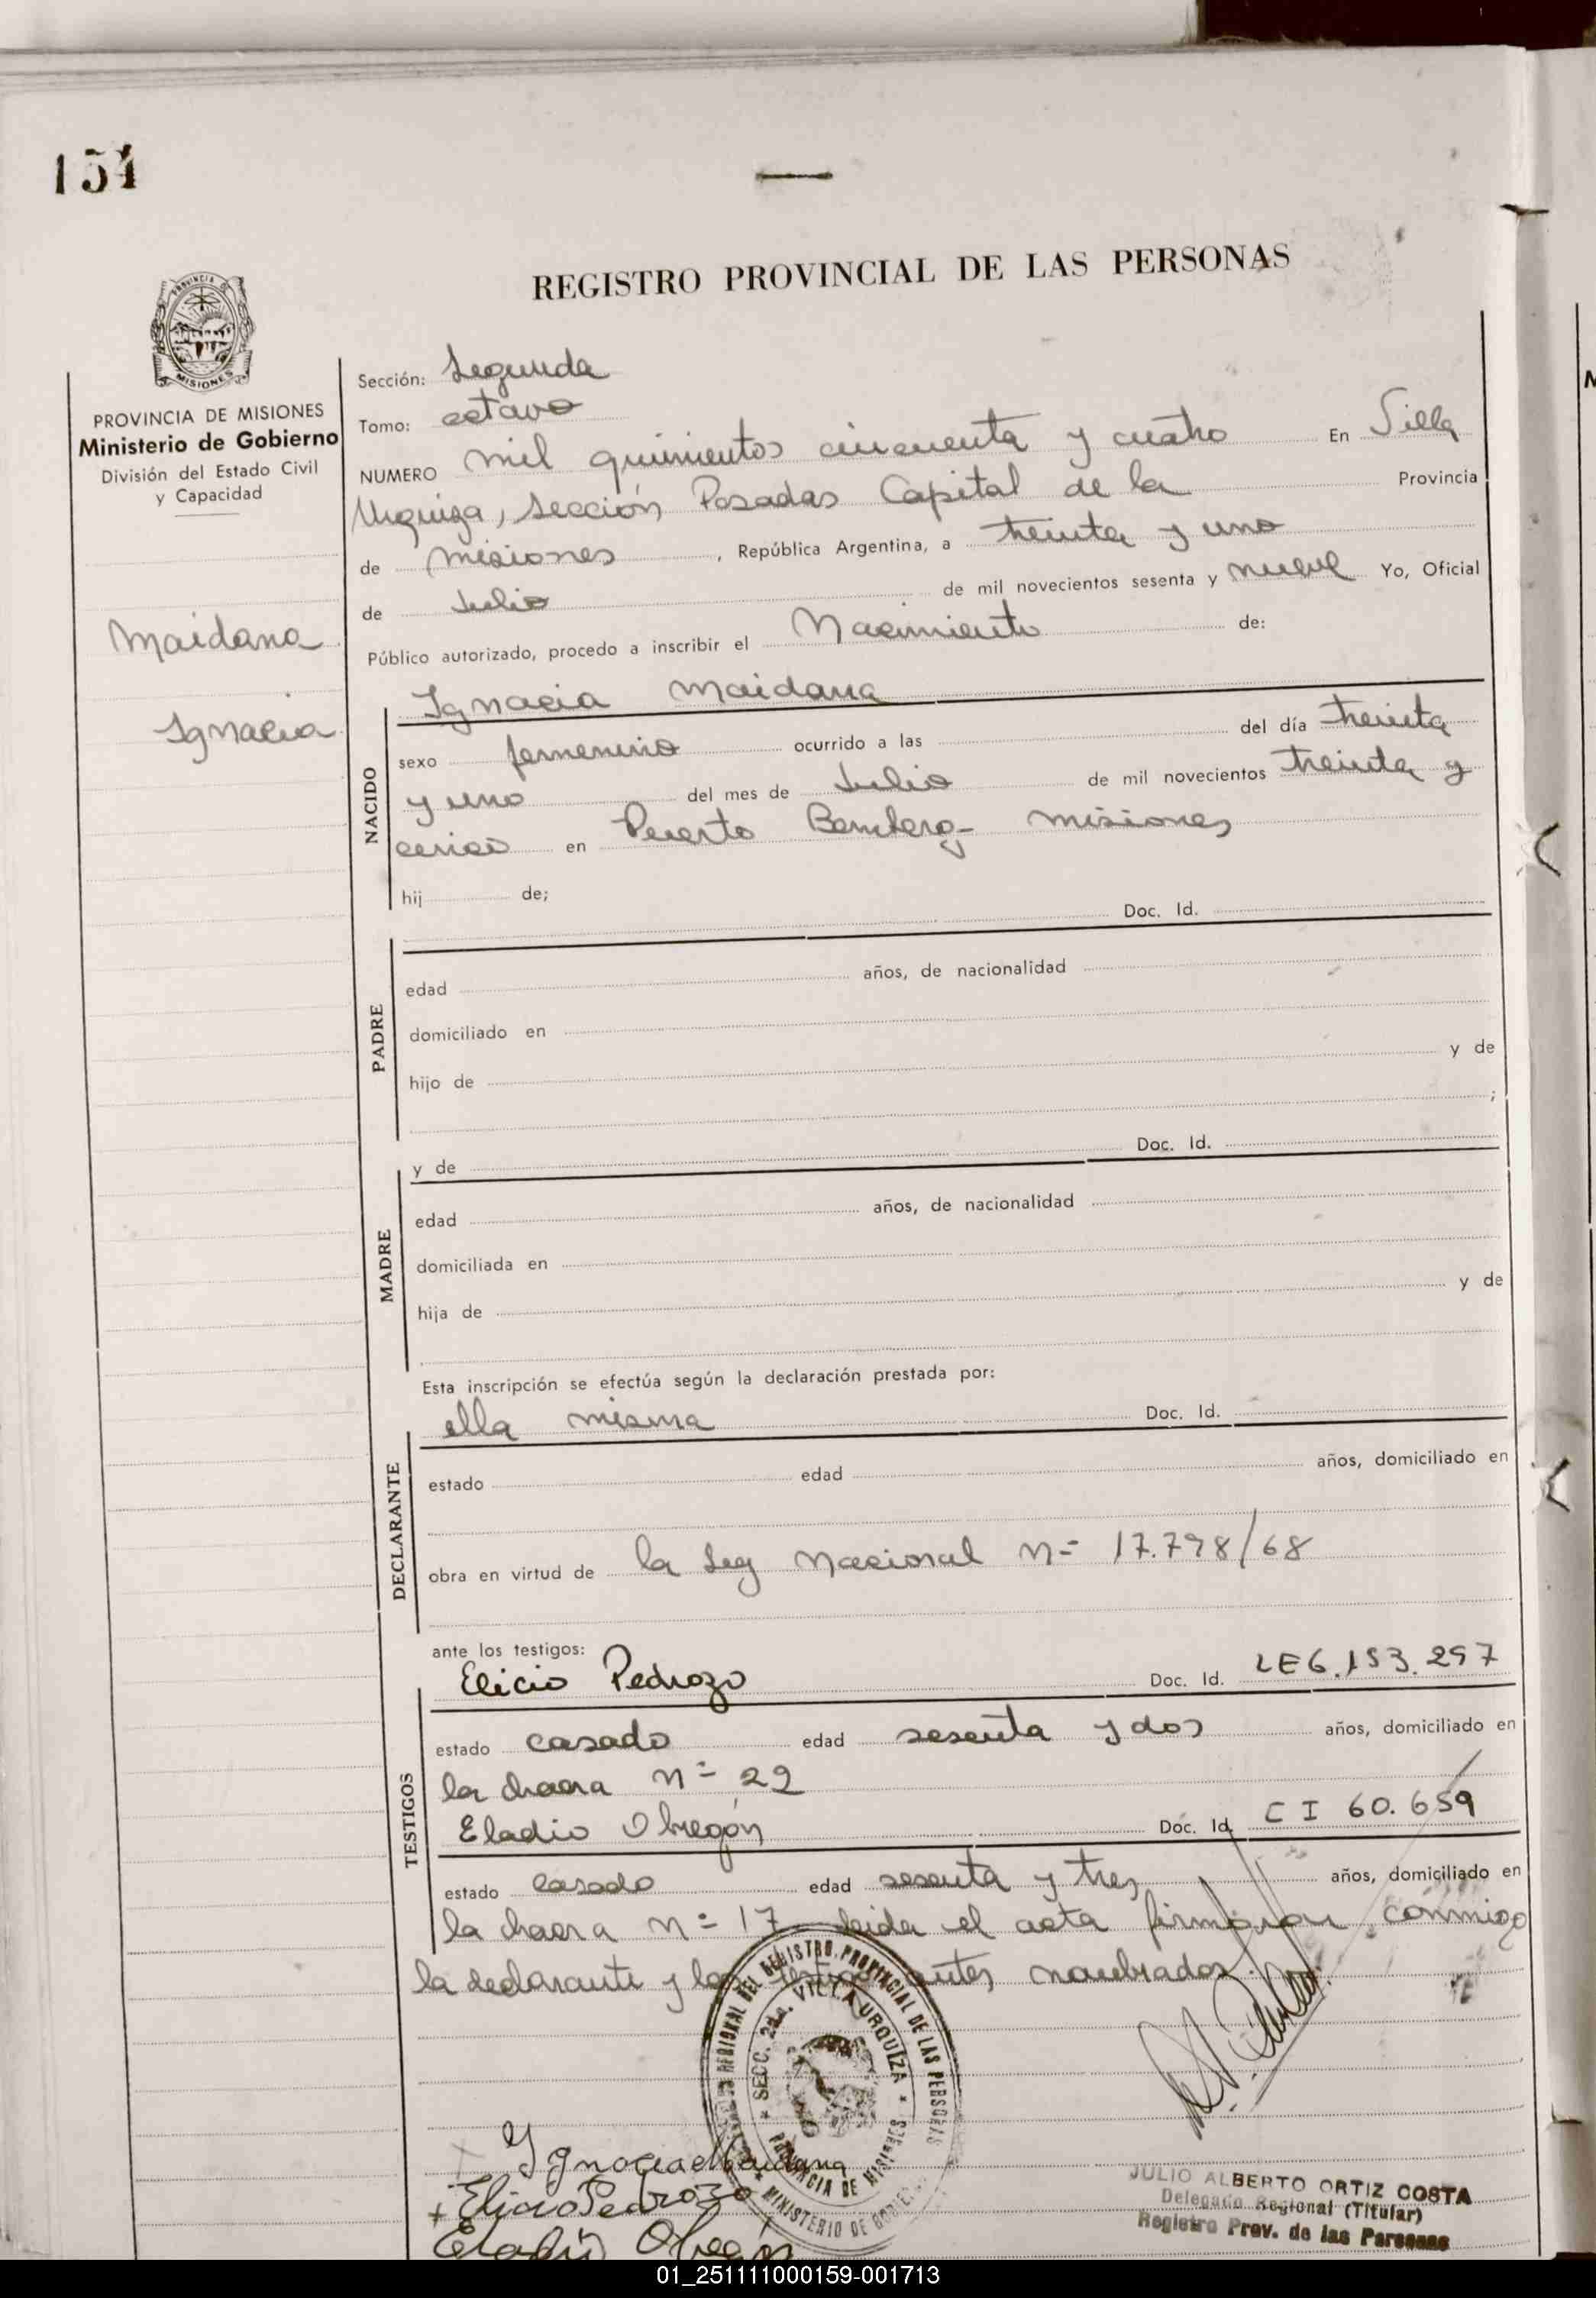 154
REGISTRO PROVINCIAL DE LAS PERSONAS
PROVINCIA DE
MISIONES
PROVINCIA DE MISIONES
Ministerio de Gobierno
División del Estado Civil
y Capacidad
Maidana
Ignacia
Sección: Segunda
Tomo: octavo
NUMERO mil quinientos cincuenta y cuatro En Villa
Urquiza, Sección Posadas Capital de la Provincia
de misiones, República Argentina, a treinta y uno
de Julio de mil novecientos sesenta y nueve Yo, Oficial
Público autorizado, procedo a inscribir el Nacimiento de:
NACIDO
Ignacia Maidana
sexo femenino ocurrido a las del día treinta
y uno del mes de Julio de mil novecientos treinta y
cinco en Puerto Bemberg - misiones
hij de;
Doc. Id.
PADRE
edad años, de nacionalidad
domiciliado en
hijo de y de
;
y de Doc. Id.
MADRE
edad años, de nacionalidad
domiciliada en
hija de y de
Esta inscripción se efectúa según la declaración prestada por:
ella misma Doc. Id.
DECLARANTE
estado edad años, domiciliado en
obra en virtud de la Ley Nacional n= 17.798/68
ante los testigos:
Elicio Pedrozo Doc. Id. LE 6.153.297
TESTIGOS
estado casado edad sesenta y dos años, domiciliado en
la chacra n= 29
Eladio Obregón Doc. Id. C I 60.659
estado casado edad sesenta y tres años, domiciliado en
la chacra n= 17 leida el acta firmaron conmigo
la declarante y los testigos antes nombrados.
REGIONAL DEL REGISTRO PROVINCIAL DE LAS PERSONAS
SECC. 2da. VILLA URQUIZA
PROVINCIA DE MISIONES
MINISTERIO DE GOBIERNO
Ignacia Maidana
Elicio Pedrozo
Eladio Obregón
JULIO ALBERTO ORTIZ COSTA
Delegado Regional (Titular)
Registro Prov. de las Personas
01_251111000159-001713